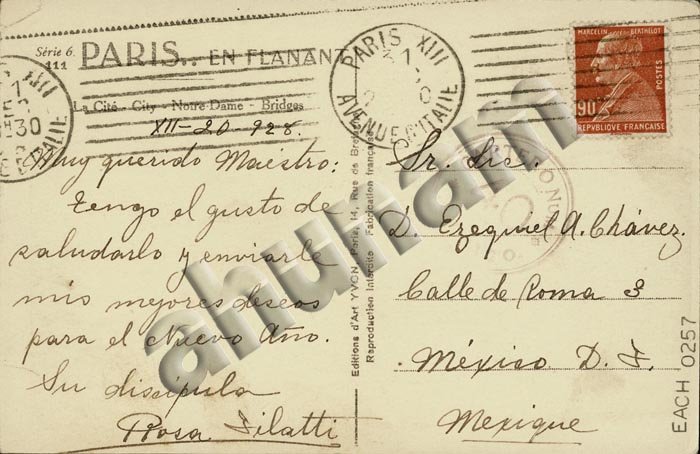 Série 6.
111
PARIS... EN FLANANT
La Cité - City - Notre-Dame - Bridges
XII-20-928.
Muy querido Maestro:
Tengo el gusto de
saludarlo y enviarle
mis mejores deseos
para el Nuevo Año.
Su discípula
Rosa Filatti
Editions d'Art YVON, Paris, 14, Rue de
Reproduction Interdite Fabrication française
PARIS XIII
31
AVENUE D'ITALIE
MARCELIN BERTHELOT
POSTES
90
REPVBLIQVE FRANÇAISE
Sr. Lic.
D. Ezequiel A. Chávez.
Calle de Roma 3
México D. F.
Mexique
EACH 0257
ahunam